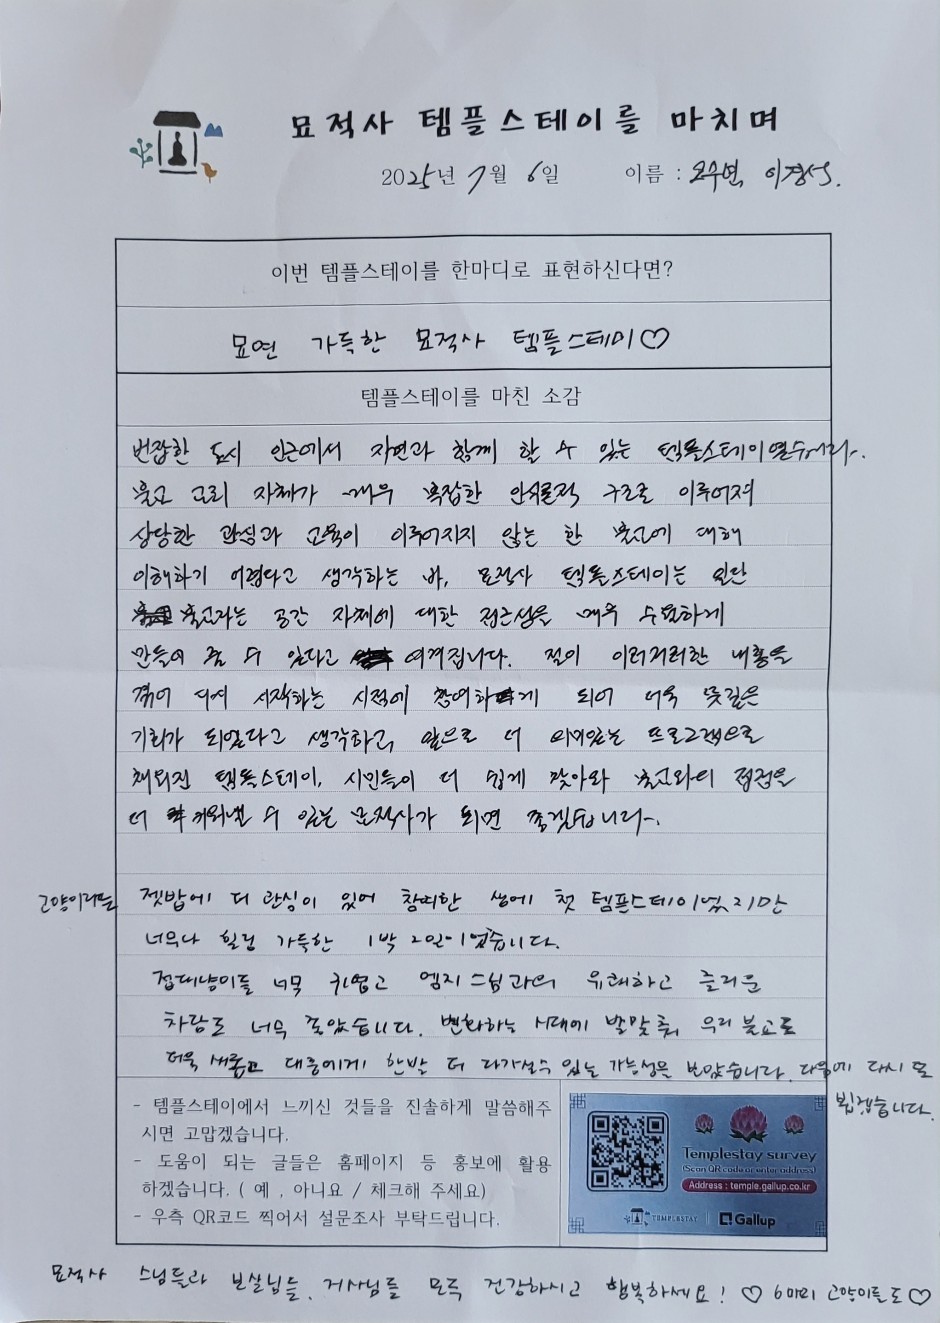 묘적사 템플스테이를 마치며
2025년 7월 6일 이름 : 오수연, 이경
이번 템플스테이를 한마디로 표현하신다면?
묘연 가득한 묘적사 템플스테이♡
템플스테이를 마친 소감
번잡한 도시 인근에서 자연과 함께 할 수 있는 템플스테이였습니다.
불교 교리 자체가 매우 복잡한 인식론적 구조로 이루어져
상당한 관심과 교육이 이루어지지 않는 한 불교에 대해
이해하기 어렵다고 생각하는 바, 묘적사 템플스테이는 일단
불교라는 공간 자체에 대한 접근성을 매우 수월하게
만들어 줄 수 있다고 여겨집니다. 절이 이러저러한 내홍을
겪어 시작하는 시점에 참여하게 되어 더욱 뜻깊은
기회가 되었다고 생각하고, 앞으로 더 의미있는 프로그램으로
채워진 템플스테이, 시민들이 더 쉽게 찾아와 불교와의 접점을
더 키워낼 수 있는 묘적사가 되면 좋겠습니다.
고양이라는 젯밥에 더 관심이 있어 참여한 생애 첫 템플스테이였지만
너무나 힐링 가득한 1박 2일이었습니다.
접대냥이들 너무 귀엽고 엠지스님과의 유쾌하고 즐거운
차담도 너무 좋았습니다. 변화하는 시대에 발맞춰, 우리 불교도
더욱 새롭고 대중에게 한발 더 다가설수 있는 가능성을 보았습니다. 다음에 다시 또
뵙겠습니다.
- 템플스테이에서 느끼신 것들을 진솔하게 말씀해주
시면 고맙겠습니다.
- 도움이 되는 글들은 홈페이지 등 홍보에 활용
하겠습니다. ( 예 , 아니요 / 체크해 주세요)
- 우측 QR코드 찍어서 설문조사 부탁드립니다.
Templestay survey
(Scan QR code or enter address)
Address : temple.gallup.co.kr
TEMPLESTAY
Gallup
묘적사 스님들과 보살님들, 거사님들 모두 건강하시고 행복하세요! ♡ 6마리 고양이들도♡